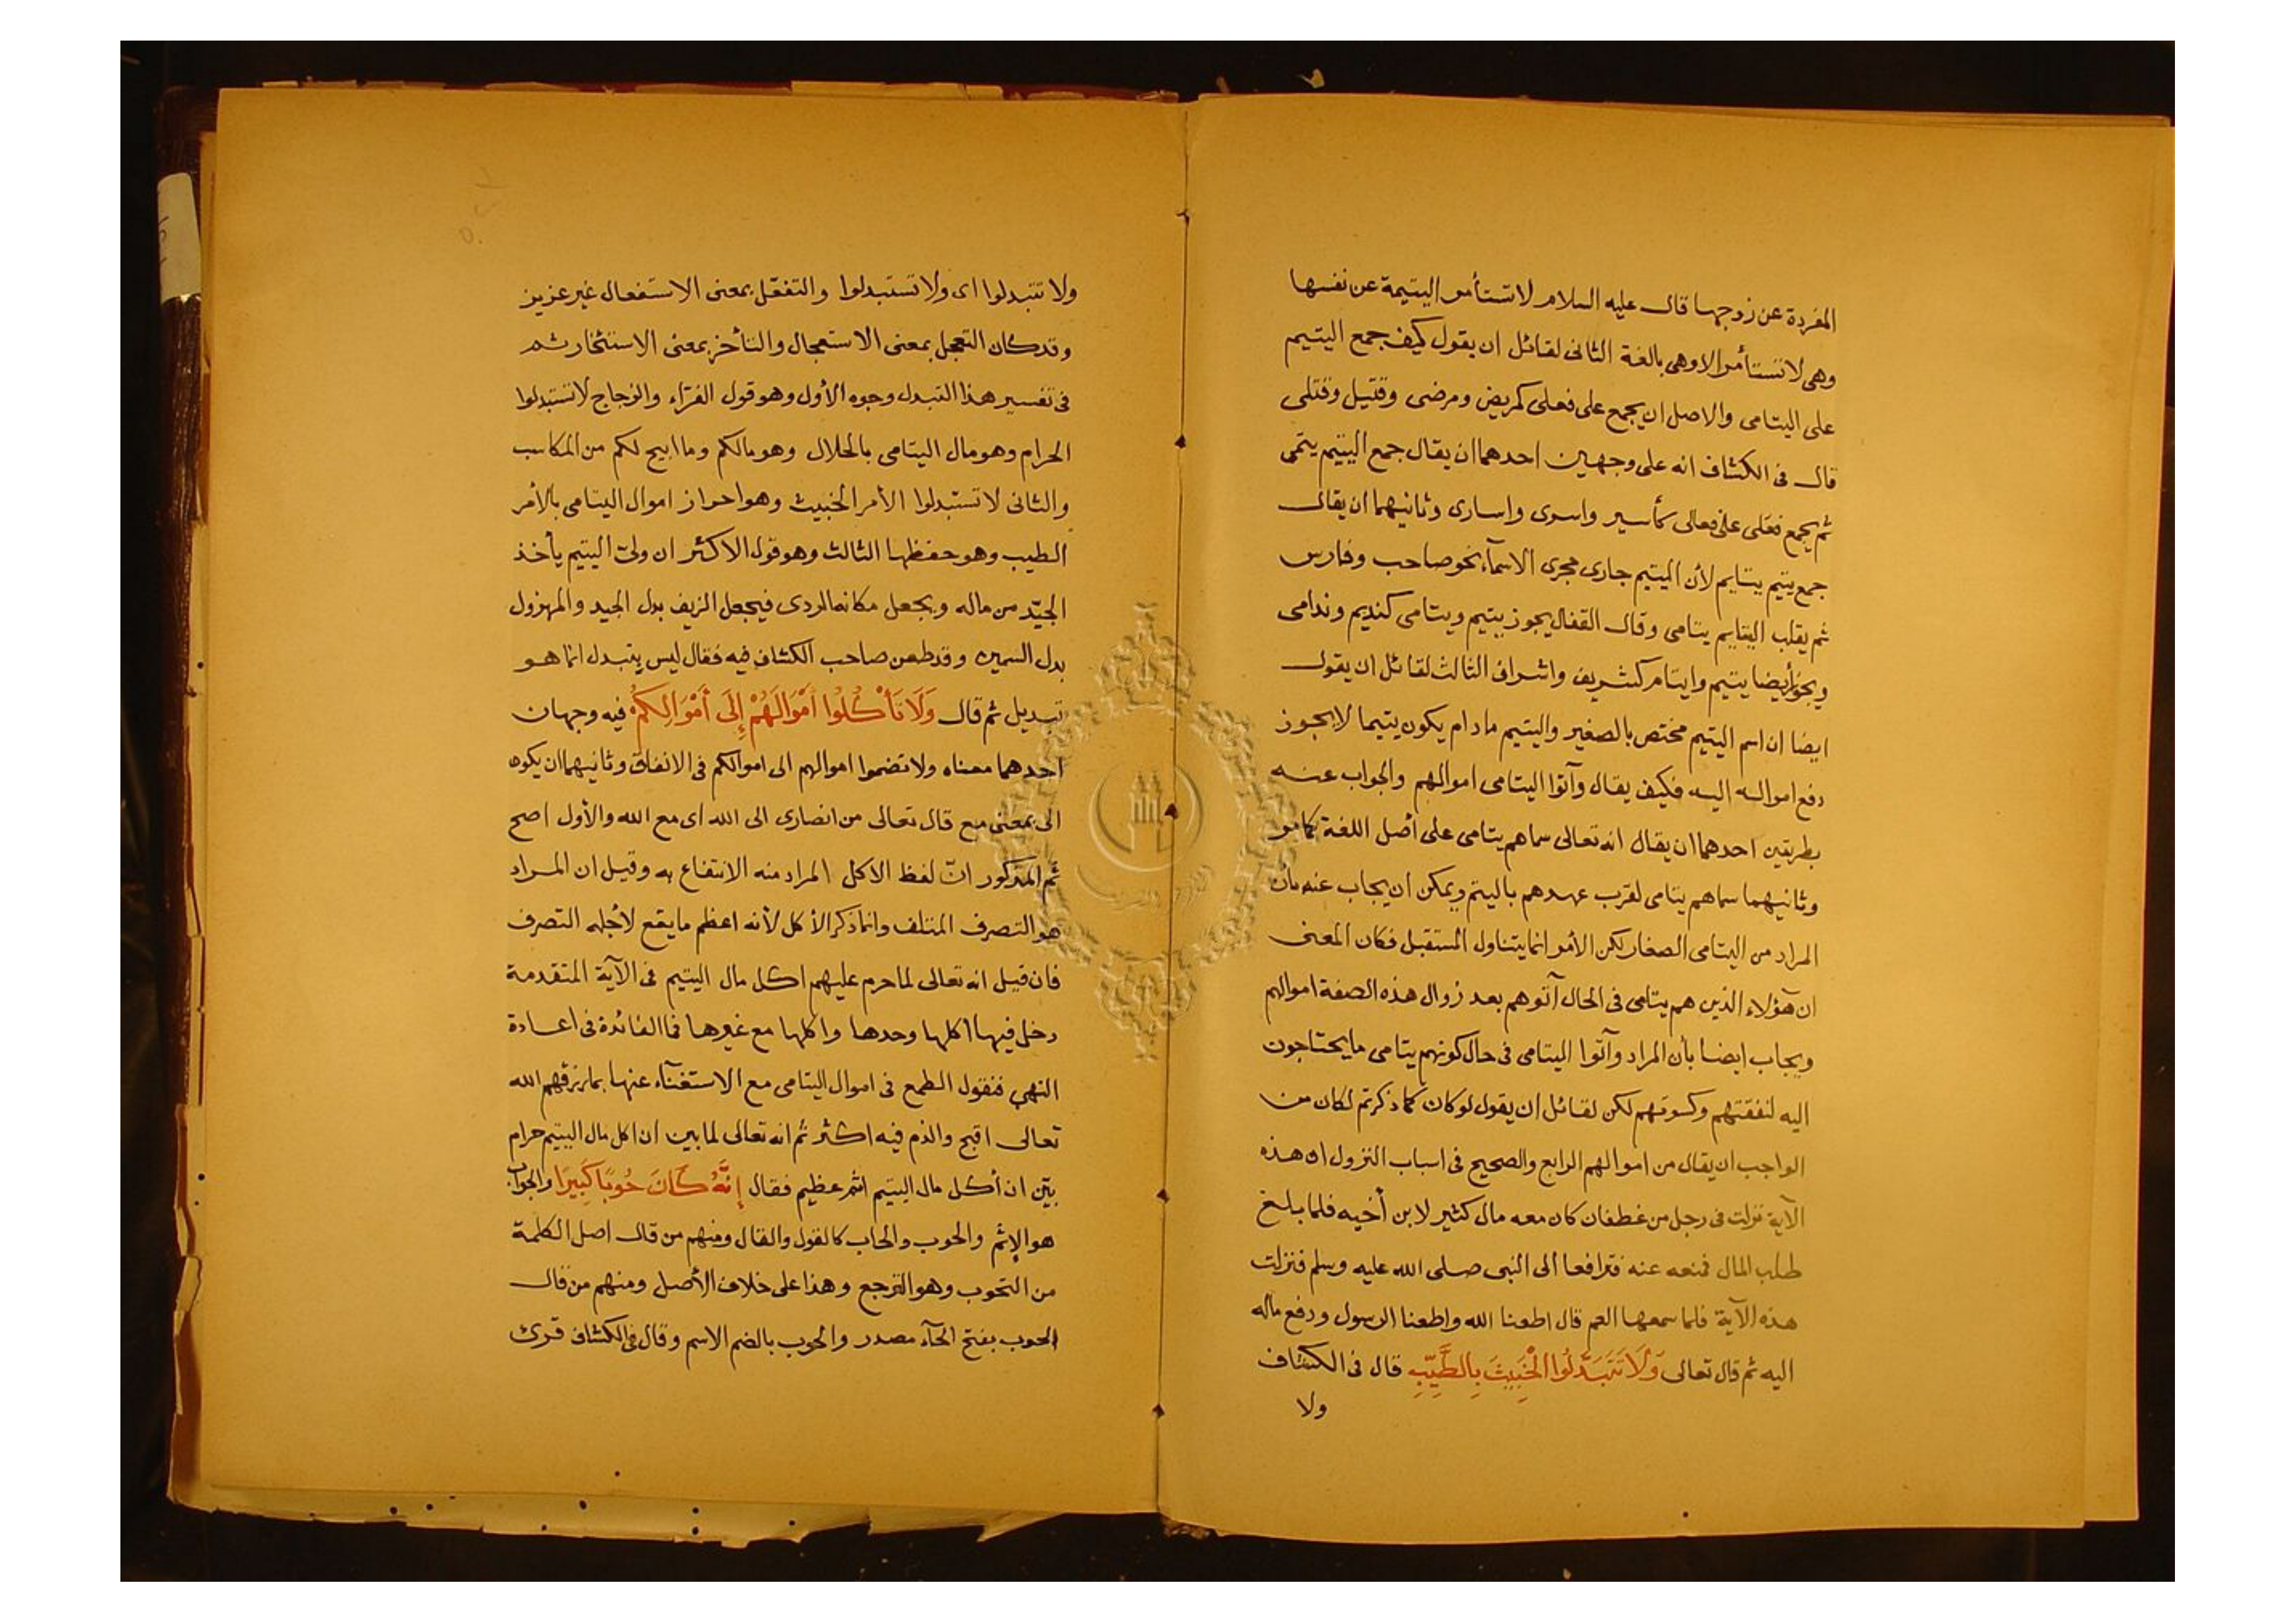 المفردة عن زوجها قال عليه السلام لا تستأمر اليتيمة عن نفسها
وهي لا تستأمر الا وهي بالغة الثانى لقائل ان يقول كيف جمع اليتيم
على اليتامى والاصل ان يجمع على فعلى كمريض ومرضى وقتيل وقتلى
قال فى الكشاف انه على وجهين احدهما ان يقال جمع اليتيم يتمى
ثم يجمع فعلى على فعالى كأسير واسرى واسارى وثانيهما ان يقال
جمع يتيم يتايم لأن اليتيم جارى مجرى الاسمآء نحو صاحب وفارس
ثم يقلب اليتايم يتامى وقال القفال يجوز يتيم ويتامى كنديم وندامى
ويجوز أيضا يتيم وايتام كشريف واشراف الثالث لقائل ان يقول
ايضا ان اسم اليتيم مختص بالصغير واليتيم مادام يكون يتيما لا يجوز
دفع امواله اليه فكيف يقال وآتوا اليتامى اموالهم والجواب عنه
بطريقين احدهما ان يقال انه تعالى سماهم يتامى على أصل اللغة كما مر
وثانيهما سماهم يتامى لقرب عهدهم باليتم ويمكن ان يجاب عنه بأن
المراد من اليتامى الصغار لكن الأمر انما يتناول المستقبل فكان المعنى
ان هؤلاء الذين هم يتامى فى الحال آتوهم بعد زوال هذه الصفة اموالهم
ويجاب ايضا بأن المراد وآتوا اليتامى فى حال كونهم يتامى ما يحتاجون
اليه لنفقتهم وكسوتهم لكن لقائل ان يقول لو كان كما ذكرتم لكان من
الواجب ان يقال من اموالهم الرابع والصحيح فى اسباب النزول ان هذه
الآية نزلت فى رجل من غطفان كان معه مال كثير لابن أخيه فلما بلغ
طلب المال فمنعه عنه فترافعا الى النبى صلى الله عليه وسلم فنزلت
هذه الآية فلما سمعها العم قال اطعنا الله واطعنا الرسول ودفع ماله
اليه ثم قال تعالى وَلَا تَتَبَدَّلُوا الْخَبِيثَ بِالطَّيِّبِ قال فى الكشاف
ولا
ولا تتبدلوا اى ولا تستبدلوا والتفعّل بمعنى الاستفعال غير عزيز
وقد كان التعجل بمعنى الاستعجال والتأخر بمعنى الاستئخار ثم
فى تفسير هذا التبدل وجوه الأول وهو قول الفرّاء والزجاج لا تستبدلوا
الحرام وهو مال اليتامى بالحلال وهو مالكم وما ابيح لكم من المكاسب
والثانى لا تستبدلوا الأمر الخبيث وهو احراز اموال اليتامى بالأمر
الطيب وهو حفظها الثالث وهو قول الاكثر ان ولىّ اليتيم يأخذ
الجيّد من ماله ويجعل مكانه الردى فيجعل الزيف بدل الجيد والمهزول
بدل السمين وقد طعن صاحب الكشاف فيه فقال ليس بتبدل انما هو
تبديل ثم قال وَلَا تَأْكُلُوا أَمْوَالَهُمْ إِلَى أَمْوَالِكُمْ فيه وجهان
احدهما معناه ولا تضموا اموالهم الى اموالكم فى الانفاق وثانيهما ان يكون
الى بمعنى مع قال تعالى من انصارى الى الله اى مع الله والأول اصح
ثم المذكور انّ لفظ الاكل المراد منه الانتفاع به وقيل ان المراد
هو التصرف المتلف وانما ذكر الأكل لأنه اعظم ما يقع لأجله التصرف
فان قيل انه تعالى لما حرم عليهم اكل مال اليتيم فى الآية المتقدمة
دخل فيها اكلها وحدها واكلها مع غيرها فما الفائدة فى اعادة
النهي فنقول الطمع فى اموال اليتامى مع الاستغنآء عنها بما رزقهم الله
تعالى اقبح والذم فيه اكثر ثم انه تعالى لما بين ان اكل مال اليتيم حرام
بيّن ان أكل مال اليتيم اثم عظيم فقال إِنَّهُ كَانَ حُوبًا كَبِيرًا والحوب
هو الإثم والحوب والحاب كالقول والقال ومنهم من قال اصل الكلمة
من التحوب وهو الترجع وهذا على خلاف الأصل ومنهم من قال
الحوب بفتح الحآء مصدر والحوب بالضم الاسم وقال فى الكشاف قرئ